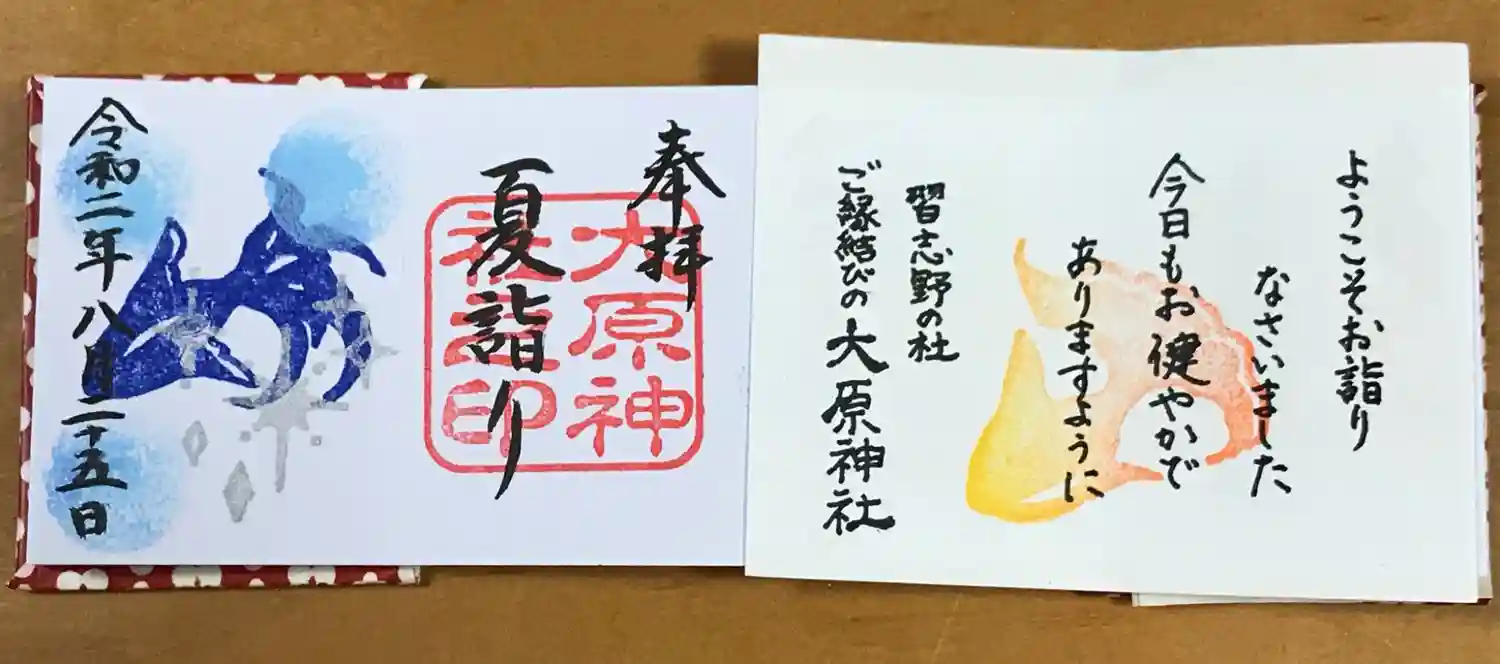 ようこそお詣り
なさいました
今日もお健やかで
ありますように
習志野の杜
ご縁結びの大原神社
奉拝
夏詣り
大原神
社之印
令和二年八月二十五日